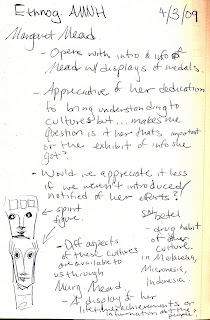 Ethnog. AMNH 4/3/09
Margaret Mead
- Opens with intro & info of
Mead w/ displays of medals.
- Appreciative of her dedication
to bring understanding to
cultures but... makes me
question is it her that's important
or the exhibit of info she
got?
- Would we appreciate it less
if we weren't introduced/
notified of her efforts?
spirit
figure.
- Diff aspects
of these cultures
are available to
us through
Marg. Mead
- A display of her
achievements or
information of the
people?
betel
- drug habit
of other
culture.
in Melanesia,
Micronesia,
Indonesia.